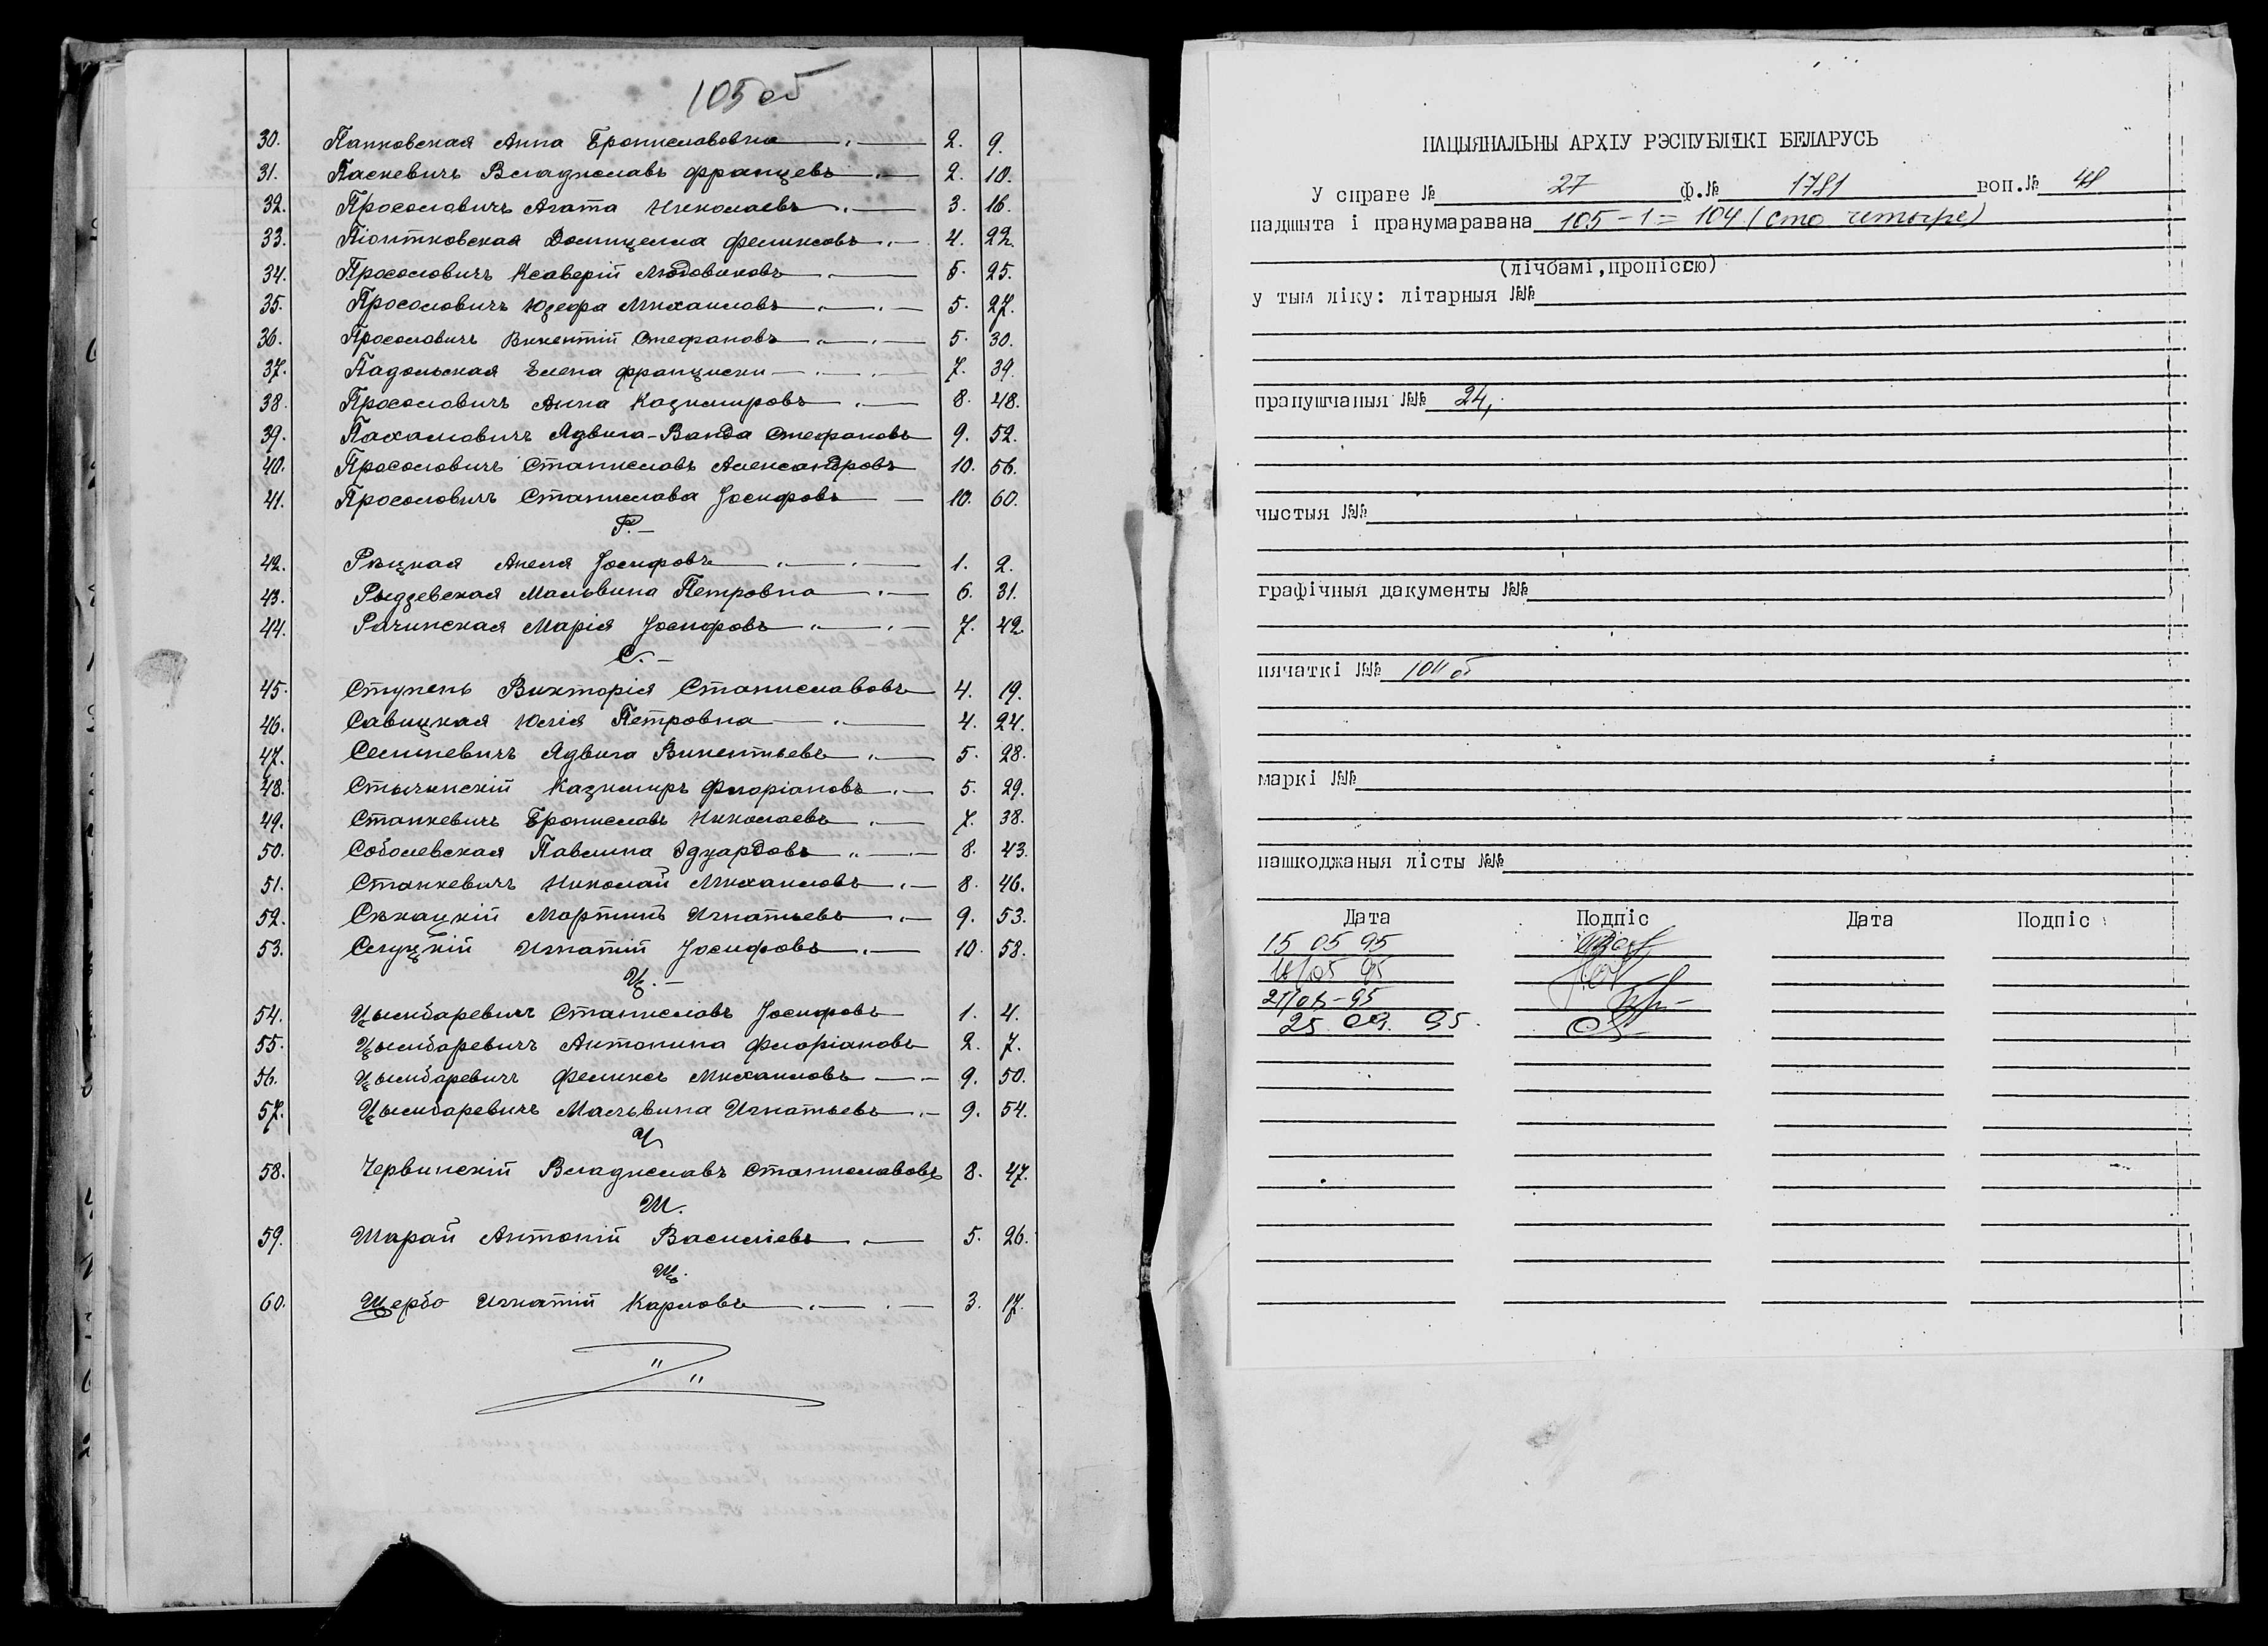 105 об
30. Панковская Анна Брониславовна 2. 9.
31. Паскевичъ Владиславъ Францевъ 2. 10.
32. Просоловичъ Агата Николаевъ 3. 16.
33. Піонтковская Домицелла Феликсовъ 4. 22.
34. Просоловичъ Ксаверій Людовиковъ 5. 25.
35. Просоловичъ Юзефа Михаиловъ 5. 27.
36. Просоловичъ Викентій Стефановъ 5. 30.
37. Падольская Елена Франциски 7. 39.
38. Просоловичъ Анна Казимировъ 8. 48.
39. Пахаловичъ Ядвига-Ванда Стефановъ 9. 52.
40. Просоловичъ Станиславъ Александровъ 10. 56.
41. Просоловичъ Станислава Іосифовъ 10. 60.
Р.-
42. Рѣцкая Анеля Іосифовъ 1. 2.
43. Рыдзевская Мальвина Петровна 6. 31.
44. Рачинская Марія Іосифовъ 7. 42.
С.-
45. Ступень Викторія Станиславовъ 4. 19.
46. Савицкая Юлія Петровна 4. 24.
47. Селиневичъ Ядвига Викентьевъ 5. 28.
48. Стычинскій Казимиръ Флоріановъ 5. 29.
49. Станкевичъ Брониславъ Николаевъ 7. 38.
50. Соболевская Павлина Эдуардовъ 8. 43.
51. Станкевичъ Николай Михаиловъ 8. 46.
52. Сѣкацкій Мартинъ Игнатьевъ 9. 53.
53. Слуцкій Игнатій Іосифовъ 10. 58.
Ц.-
54. Цымбаревичъ Станиславъ Іосифовъ 1. 4.
55. Цымбаревичъ Антонина Флоріановъ 2. 7.
56. Цымбаревичъ Феликсъ Михаиловъ 9. 50.
57. Цымбаревичъ Мальвина Игнатьевъ 9. 54.
Ч
58. Червинскій Владиславъ Станиславовъ 8. 47.
Ш.
59. Шарай Антоній Василіевъ 5. 26.
Щ.
60. Щербо Игнатій Карловъ 3. 17.
НАЦЫЯНАЛЬНЫ АРХІУ РЭСПУБЛІКІ БЕЛАРУСЬ
У справе № 27 ф.№ 1781 воп.№ 48
падшыта і пранумаравана 105-1=104 (сто четыре)
(лічбамі,пропіссю)
у тым ліку: літарныя №№
прапушчаныя №№ 24,
чыстыя №№
графічныя дакументы №№
пячаткі №№ 104 об
маркі №№
пашкоджаныя лісты №№
Дата Подпіс Дата Подпіс
15 05 95
25 09. 95.